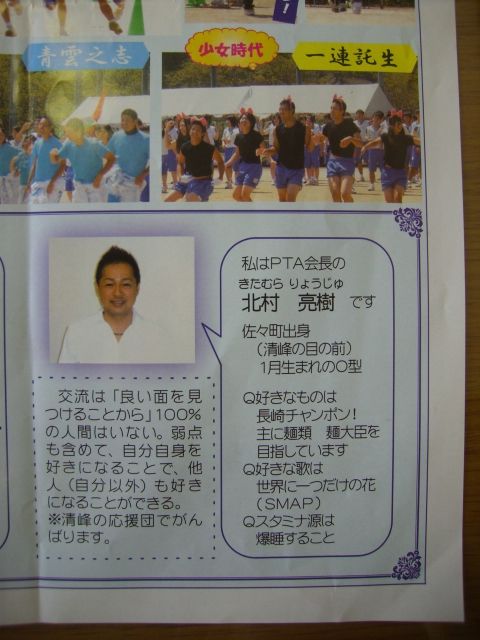 ！
青雲之志
少女時代
一連託生
私はPTA会長の
きたむら りょうじゅ
北村 亮樹 です
佐々町出身
（清峰の目の前）
1月生まれのO型
Q好きなものは
長崎チャンポン！
主に麺類 麺大臣を
目指しています
Q好きな歌は
世界に一つだけの花
（SMAP）
Qスタミナ源は
爆睡すること
交流は「良い面を見
つけることから」100%
の人間はいない。弱点
も含めて、自分自身を
好きになることで、他
人（自分以外）も好き
になることができる。
※清峰の応援団でがん
ばります。